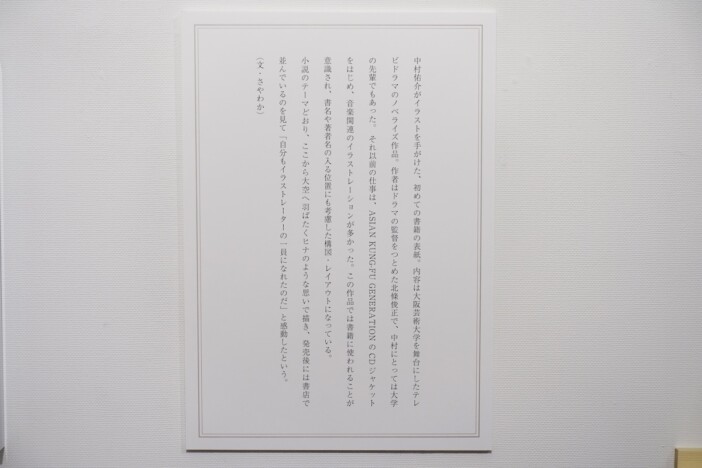 中村佑介がイラストを手がけた、初めての書籍の表紙。内容は大阪芸術大学を舞台にしたテレ
ビドラマのノベライズ作品。作者はドラマの監督をつとめた北條俊正で、中村にとっては大学
の先輩でもあった。それ以前の仕事は、ASIAN KUNG-FU GENERATIONのCDジャケット
をはじめ、音楽関連のイラストレーションが多かった。この作品では書籍に使われることが
意識され、書名や著者名の入る位置にも考慮した構図・レイアウトになっている。
小説のテーマどおり、ここから大空へ羽ばたくヒナのような思いで描き、発売後には書店で
並んでいるのを見て「自分もイラストレーターの一員になれたのだ」と感動したという。
（文・さやわか）